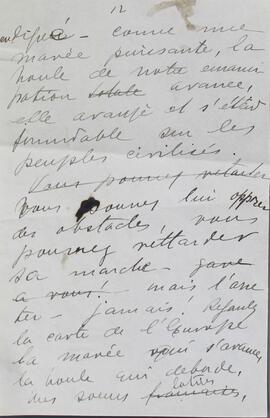 12
endigué - comme une
marée puissante, la
houle de notre emanci
pation totale avance,
elle avance et s'étend
formidable sur les
peuples civilisés.
Vous pouvez retarder
Vous pouvez lui opposer
des obstacles, vous
pourrez rettarder
sa marche - gare
a vous! mais l'arre
ter - jamais. Regardez
la carte de l'Europe
la marée qui s'avance,
la houle qui deborde,
des soeurs francaises,